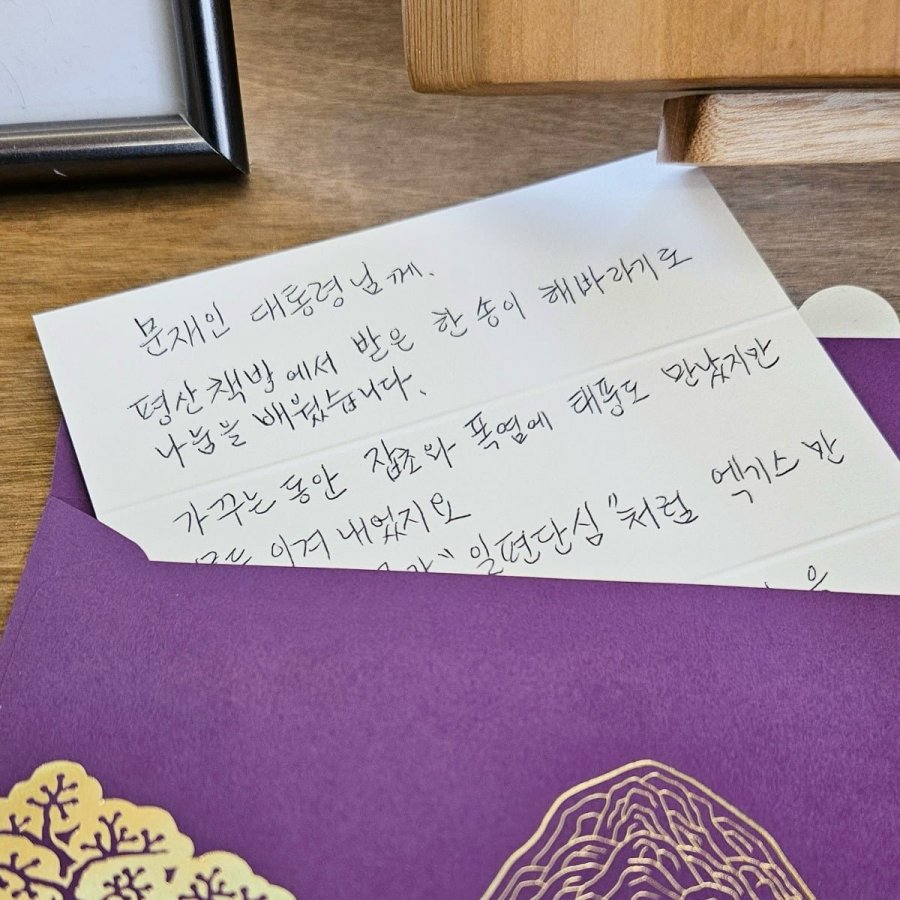 문재인 대통령님께.
평산책방에서 받은 한 송이 해바라기로
나눔을 배웠습니다.
가꾸는 동안 잡초와 폭염에 태풍도 만났지만
모든 이겨 내었지요
"일편단심"처럼 엑기스만